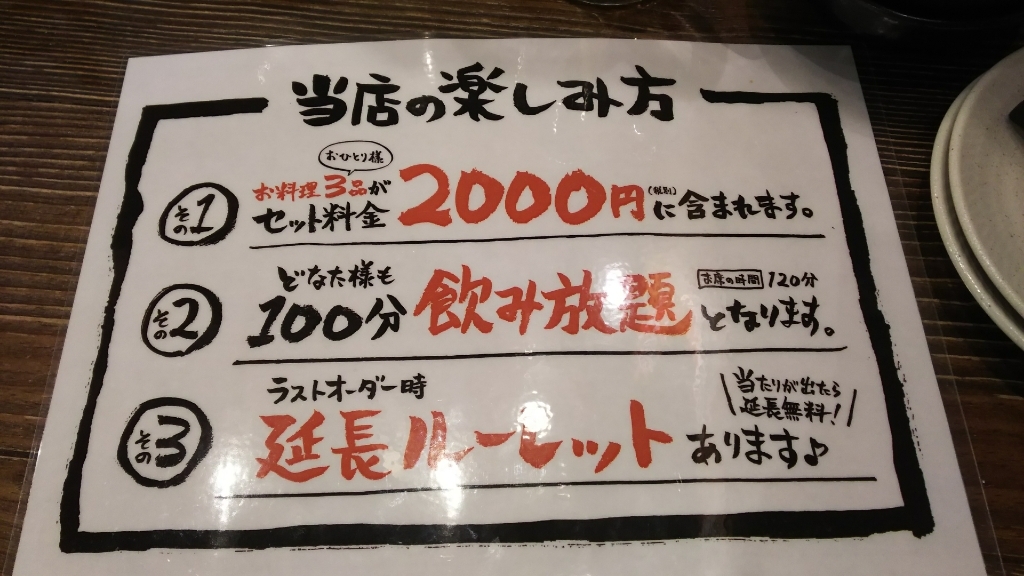 当店の楽しみ方
その1
おひとり様
お料理3品が
セット料金
2000円(税別)に含まれます。
その2
どなた様も
100分飲み放題となります。
お席の時間 120分
その3
ラストオーダー時
延長ルーレットあります♪
当たりが出たら
延長無料!